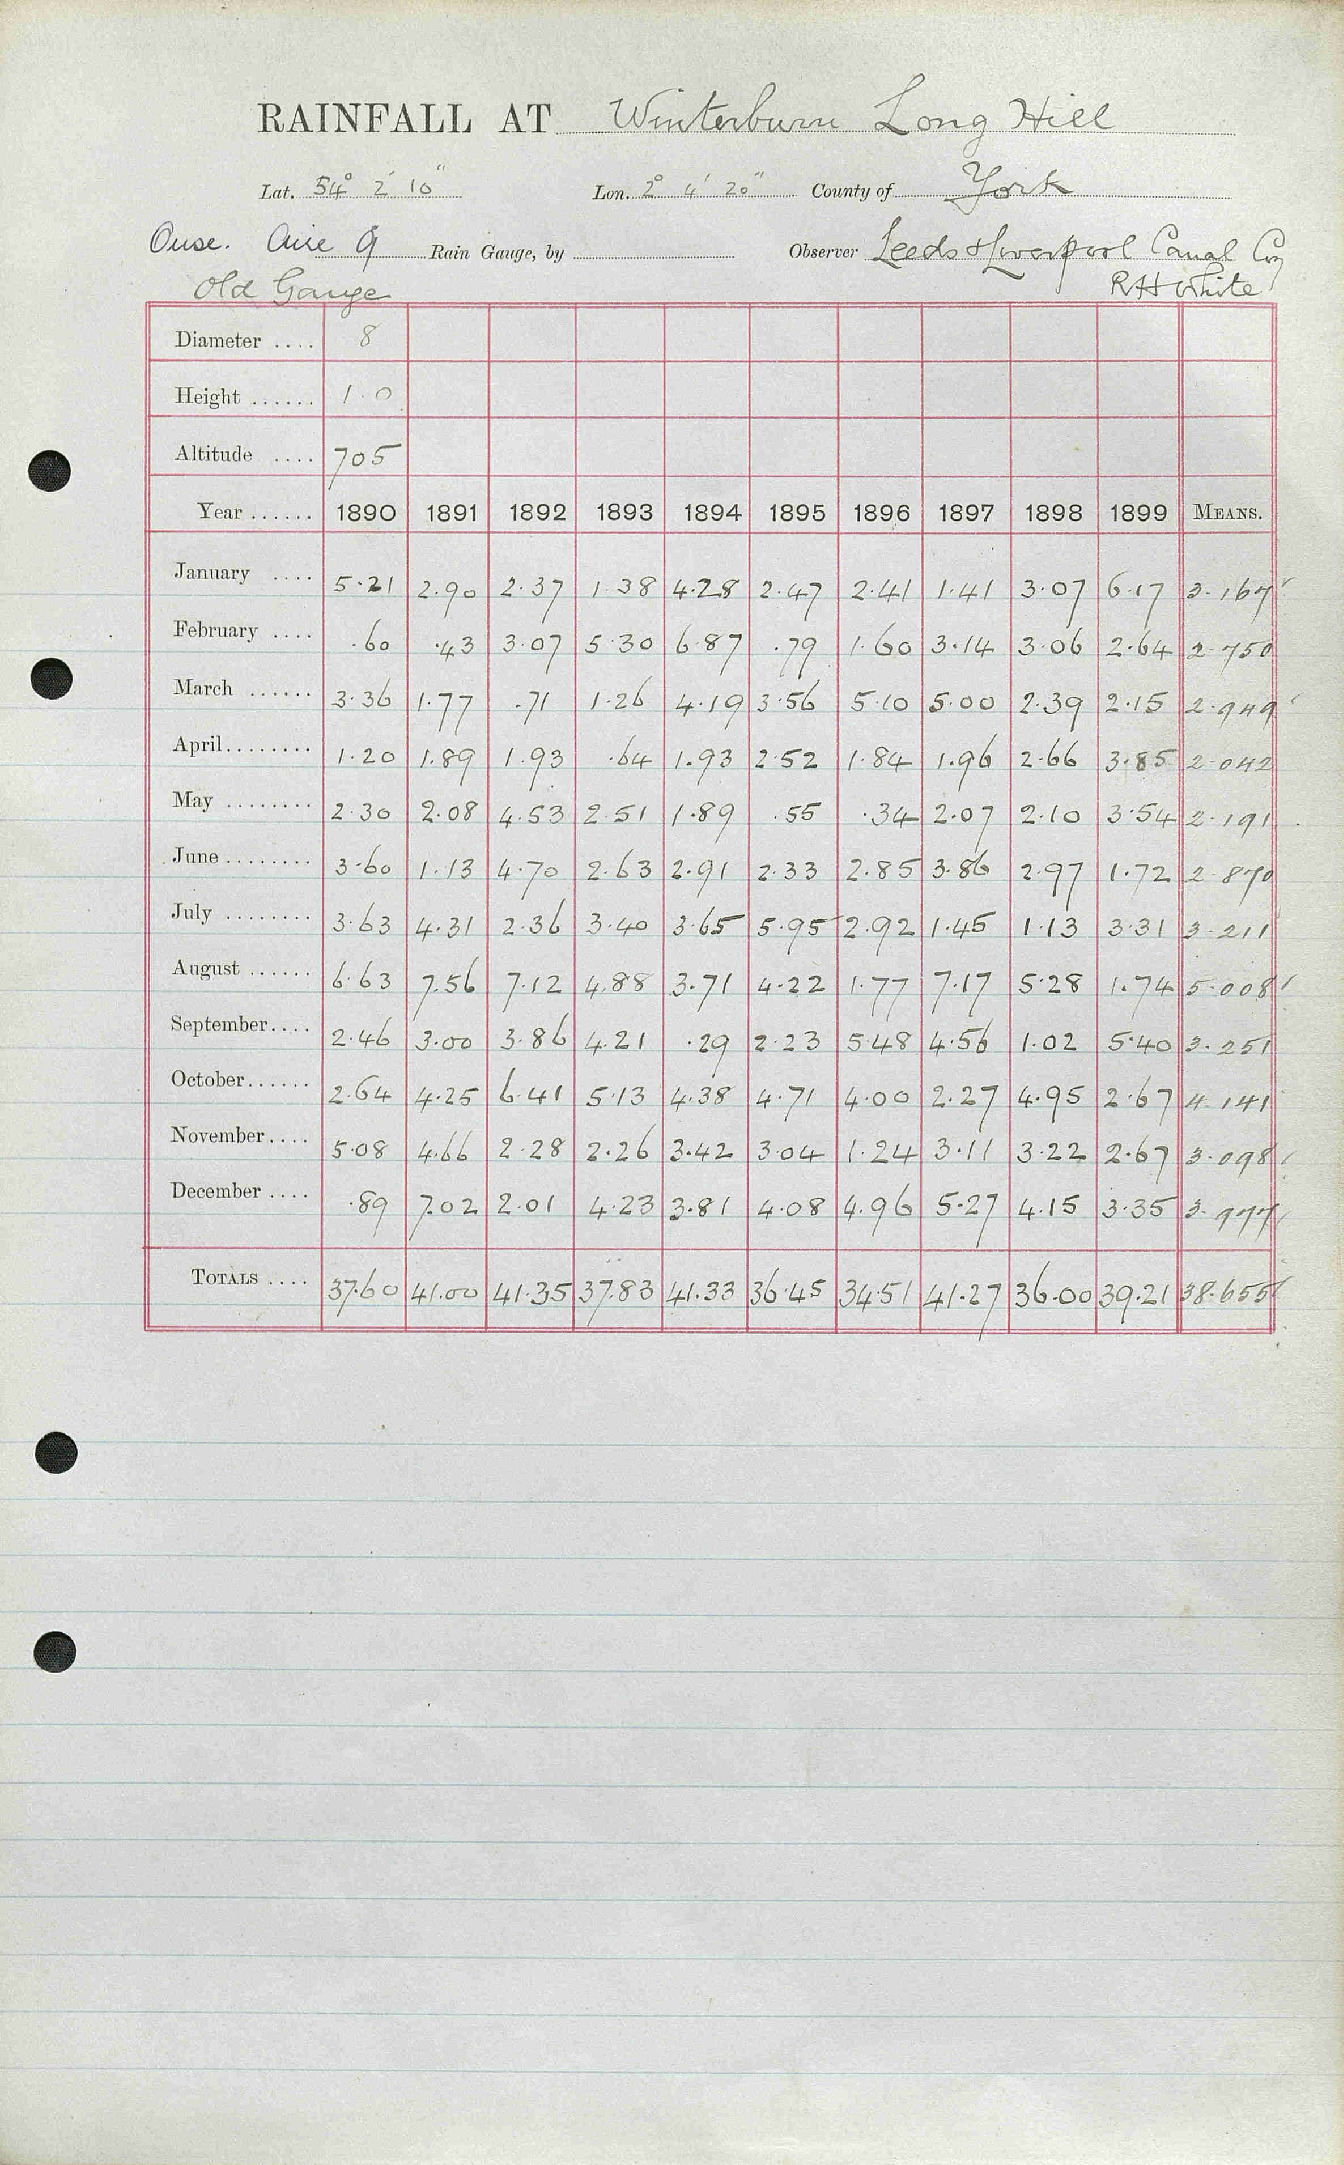 RAINFALL AT Winterburn Long Hill
Lat. 54° 2' 10" Lon. 2° 4' 20" County of York
Ouse. Aire 9 Rain Gauge, by Observer Leeds & Liverpool Canal Coy
Old Gauge R H White
Diameter .... 8
Height ...... 1.0
Altitude .... 705
Year ...... 1890 1891 1892 1893 1894 1895 1896 1897 1898 1899 MEANS.
January .... 5.21 2.90 2.37 1.38 4.28 2.47 2.41 1.41 3.07 6.17 3.167
February .... .60 .43 3.07 5.30 6.87 .79 1.60 3.14 3.06 2.64 2.750
March ...... 3.36 1.77 .71 1.26 4.19 3.56 5.10 5.00 2.39 2.15 2.949
April........ 1.20 1.89 1.93 .64 1.93 2.52 1.84 1.96 2.66 3.85 2.042
May ........ 2.30 2.08 4.53 2.51 1.89 .55 .34 2.07 2.10 3.54 2.191
June ........ 3.60 1.13 4.70 2.63 2.91 2.33 2.85 3.86 2.97 1.72 2.870
July ........ 3.63 4.31 2.36 3.40 3.65 5.95 2.92 1.45 1.13 3.31 3.211
August ...... 6.63 7.56 7.12 4.88 3.71 4.22 1.77 7.17 5.28 1.74 5.008
September.... 2.46 3.00 3.86 4.21 .29 2.23 5.48 4.56 1.02 5.40 3.251
October...... 2.64 4.25 6.41 5.13 4.38 4.71 4.00 2.27 4.95 2.67 4.141
November.... 5.08 4.66 2.28 2.26 3.42 3.04 1.24 3.11 3.22 2.67 3.098
December .... .89 7.02 2.01 4.23 3.81 4.08 4.96 5.27 4.15 3.35 3.977
TOTALS .... 37.60 41.00 41.35 37.83 41.33 36.45 34.51 41.27 36.00 39.21 38.655